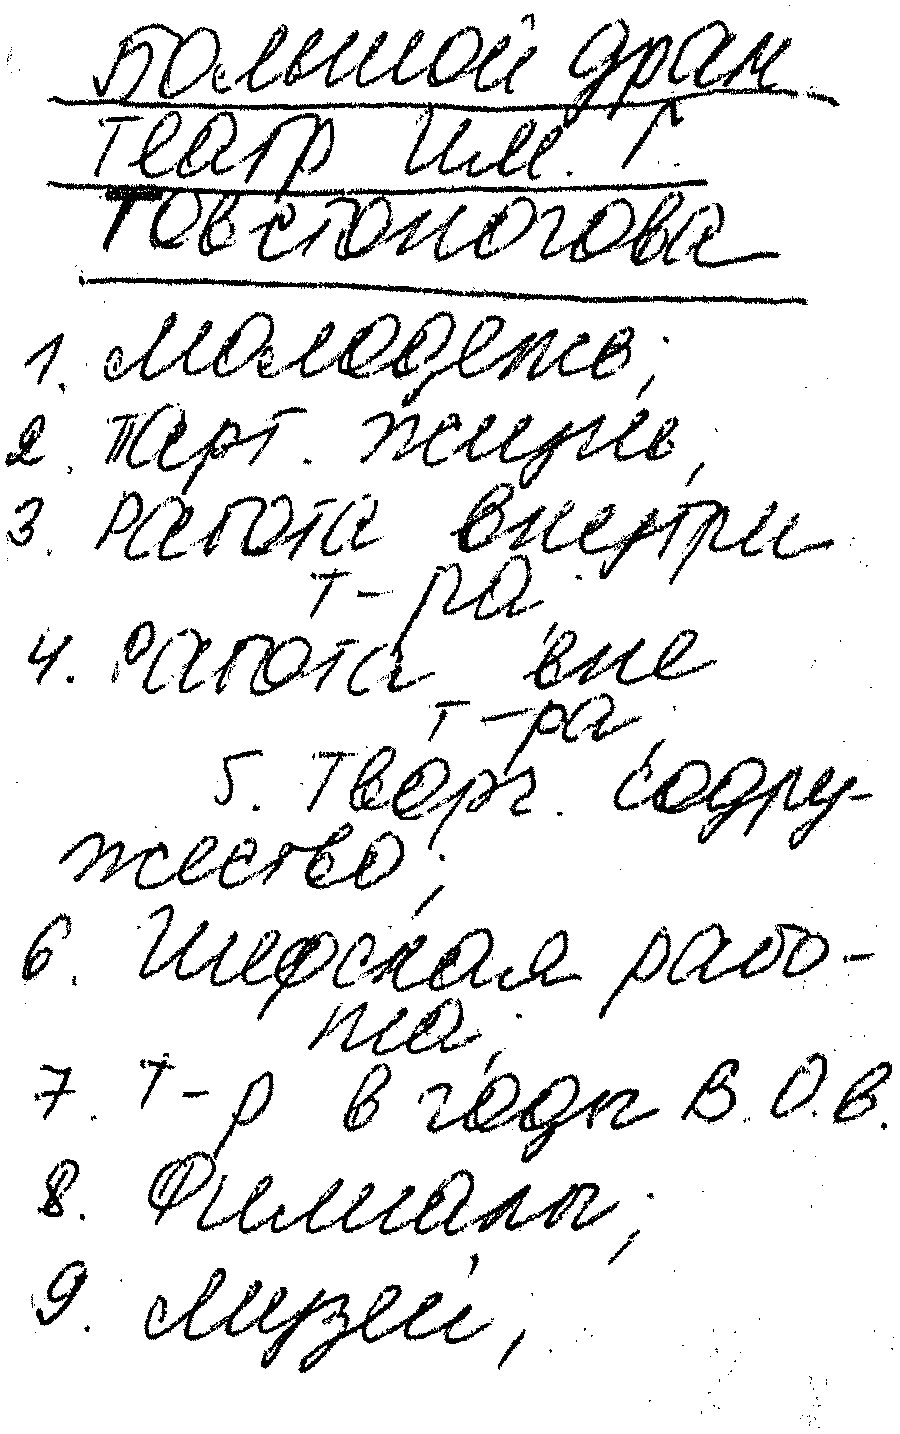 Большой драм.
театр им. Г.
Товстоногова
1. Молодежь;
2. Парт. жизнь;
3. Работа внутри
т-ра;
4. Работа вне
т-ра;
5. Творч. содру-
жество;
6. Шефская рабо-
та;
7. Т-р в годы В.О.В.
8. Филиалы;
9. Музей;